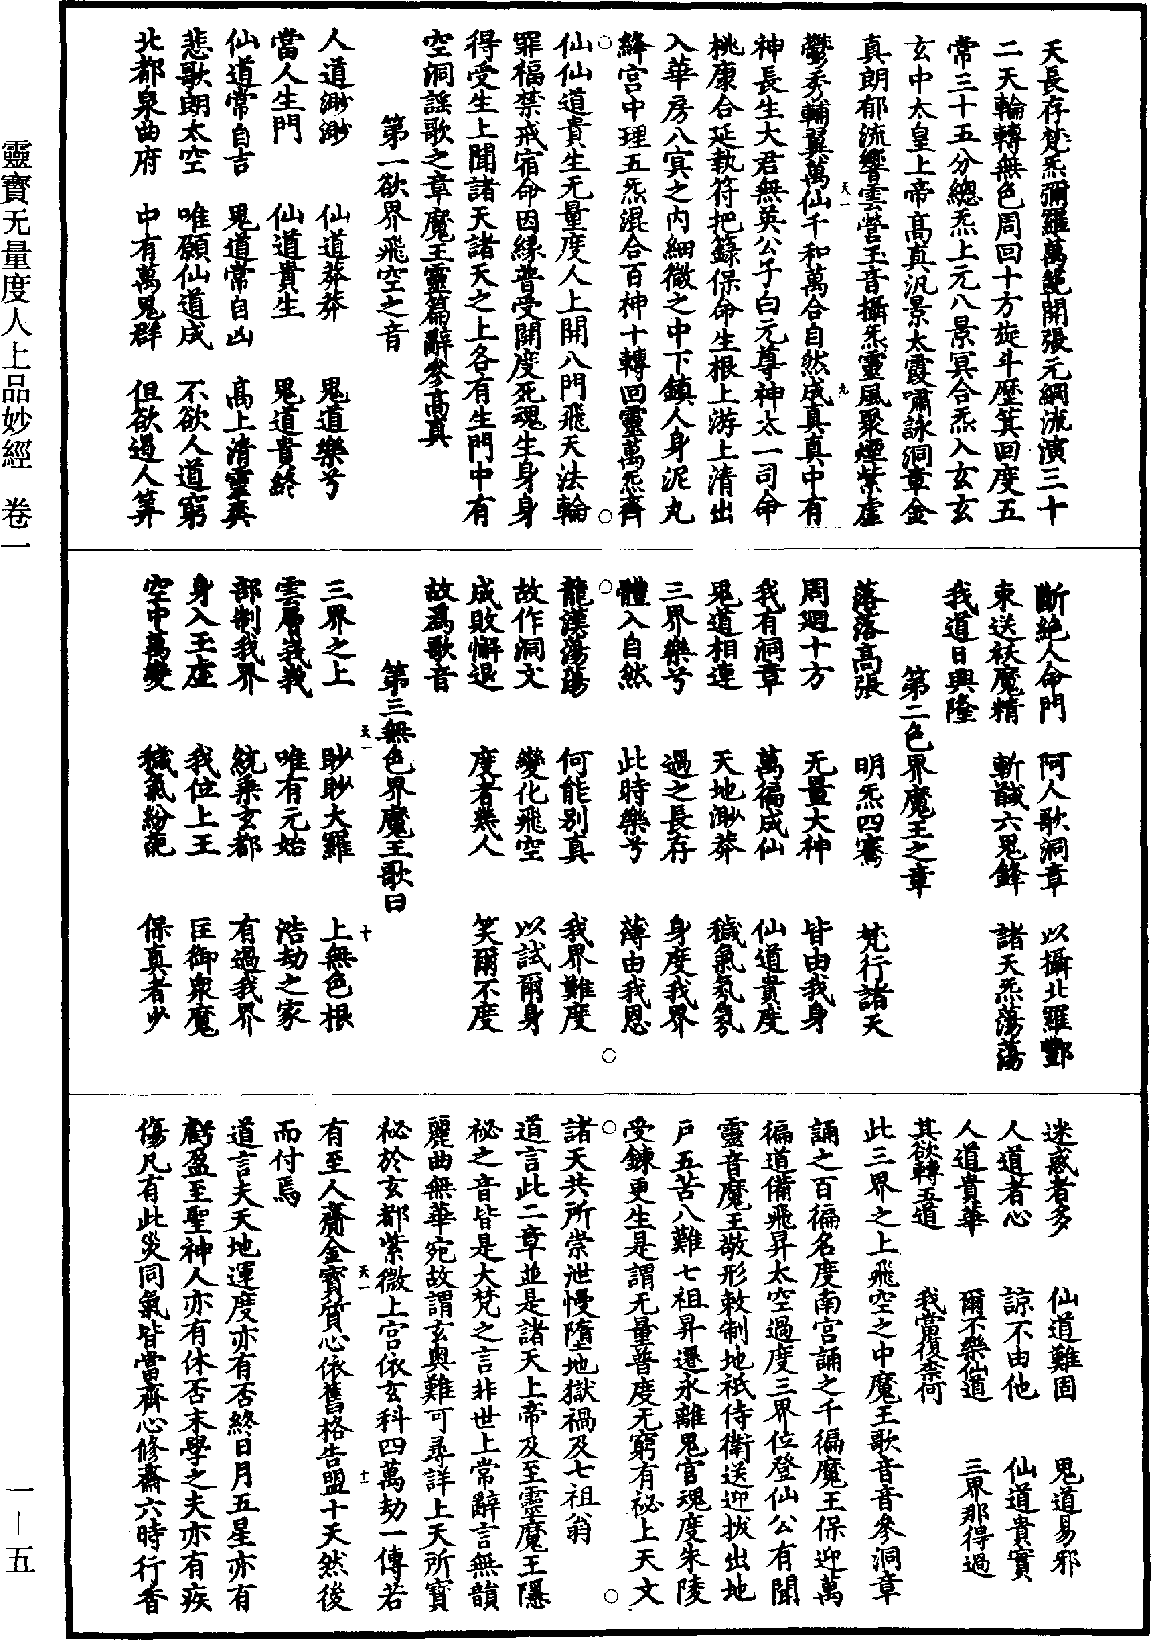 天長存梵炁彌羅萬範開張元綱流演三十
二天輪轉無色周回十方旋斗歷箕回度五
常三十五分總炁上元八景冥合炁入玄玄
玄中太皇上帝高真汎景太霞嘯詠洞章金
真朗郁流響雲營玉音攝炁靈風聚煙紫虛
天一
九
鬱秀輔翼萬仙千和萬合自然成真真中有
神長生大君無英公子白元尊神太一司命
桃康合延執符把籙保命生根上游上清出
入華房八㝠之內細微之中下鎮人身泥丸
絳宮中理五炁混合百神十轉回靈萬炁齊
仙仙道貴生无量度人上開八門飛天法輪
罪福禁戒宿命因緣普受開度死魂生身身
得受生上聞諸天諸天之上各有生門中有
空洞謠歌之章魔王靈篇辭參高真
第一欲界飛空之音
人道渺渺 仙道莽莽 鬼道樂兮
當人生門 仙道貴生 鬼道貴終
仙道常自吉 鬼道常自凶 高上清靈爽
悲歌朗太空 唯願仙道成 不欲人道窮
北都泉曲府 中有萬鬼群 但欲遏人筭
斷絕人命門 阿人歌洞章 以攝北羅酆
束送祅魔精 斬馘六鬼鋒 諸天炁蕩蕩
我道日興隆
第二色界魔王之章
落落高張 明炁四騫 梵行諸天
周迴十方 无量大神 皆由我身
我有洞章 萬徧成仙 仙道貴度
鬼道相連 天地渺莽 穢氣氛氛
三界樂兮 過之長存 身度我界
體入自然 此時樂兮 薄由我恩
龍漢蕩蕩 何能別真 我界難度
故作洞文 變化飛空 以試爾身
成敗懈退 度者幾人 笑爾不度
故為歌音
第三無色界魔王歌曰
天一
十
三界之上 眇眇大羅 上無色根
雲層峩峩 唯有元始 浩劫之家
部制我界 統乘玄都 有過我界
身入玉虛 我位上王 匡御眾魔
空中萬變 穢氣紛葩 保真者少
迷惑者多 仙道難固 鬼道易邪
人道者心 諒不由他 仙道貴實
人道貴華 爾不樂仙道 三界那得過
其欲轉五道 我當復柰何
此三界之上飛空之中魔王歌音音參洞章
誦之百徧名度南宮誦之千徧魔王保迎萬
徧道備飛昇太空過度三界位登仙公有聞
靈音魔王敬形敕制地祇侍衛送迎拔出地
戶五苦八難七祖昇遷永離鬼官魂度朱陵
受鍊更生是謂无量普度无窮有祕上天文
諸天共所崇泄慢墮地獄禍及七祖翁
道言此二章並是諸天上帝及至靈魔王隱
祕之音皆是大梵之言非世上常辭言無韻
麗曲無華宛故謂玄奧難可尋詳上天所寶
祕於玄都紫微上宮依玄科四萬劫一傳若
天一
十一
有至人齎金寶質心依舊格告盟十天然後
而付焉
道言夫天地運度亦有否終日月五星亦有
虧盈至聖神人亦有休否末學之夫亦有疾
傷凡有此災同氣皆當齊心修齋六時行香
靈寶无量度人上品妙經 卷一
一—五